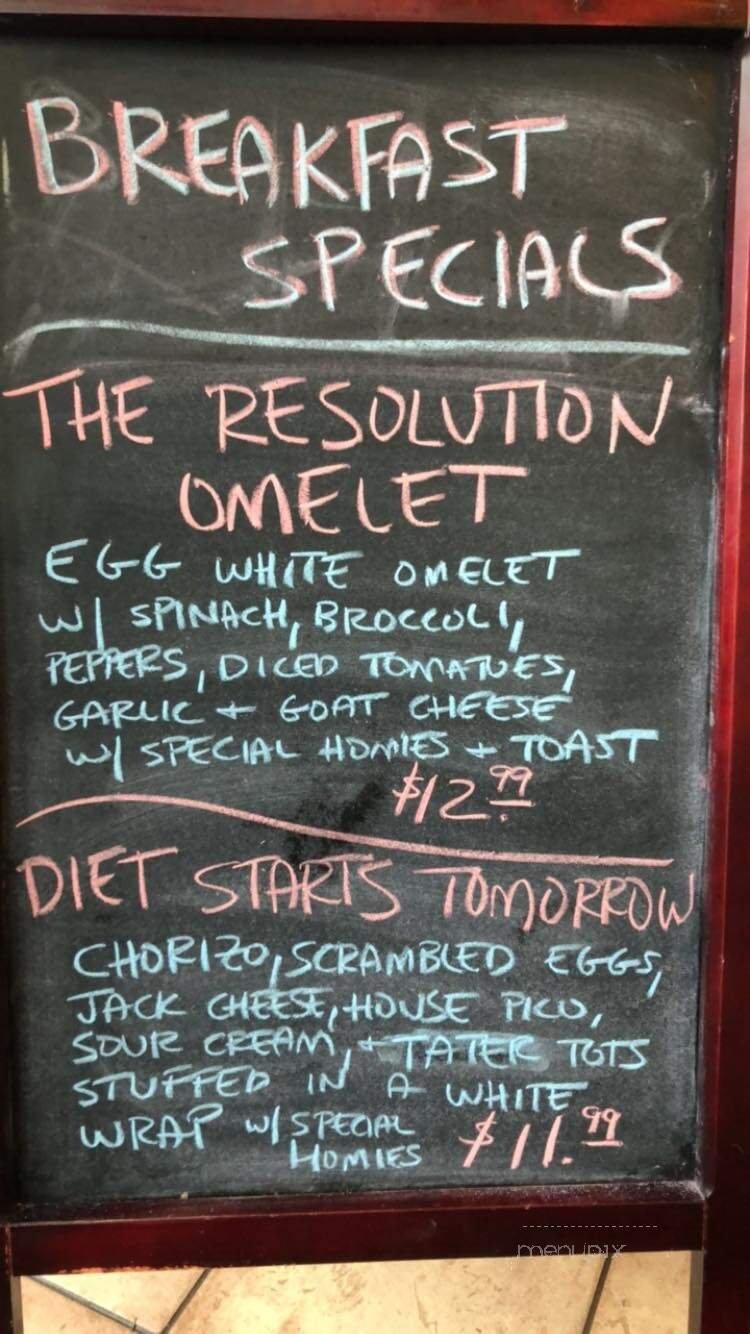 BREAKFAST
SPECIALS
THE RESOLUTION
OMELET
EGG WHITE OMELET
W/ SPINACH, BROCCOLI,
PEPPERS, DICED TOMATOES,
GARLIC + GOAT CHEESE
W/ SPECIAL HOMIES + TOAST
$12.99
DIET STARTS TOMORROW
CHORIZO, SCRAMBLED EGGS,
JACK CHEESE, HOUSE PICO,
SOUR CREAM, + TATER TOTS
STUFFED IN A WHITE
WRAP W/ SPECIAL
HOMIES $11.99
menupix